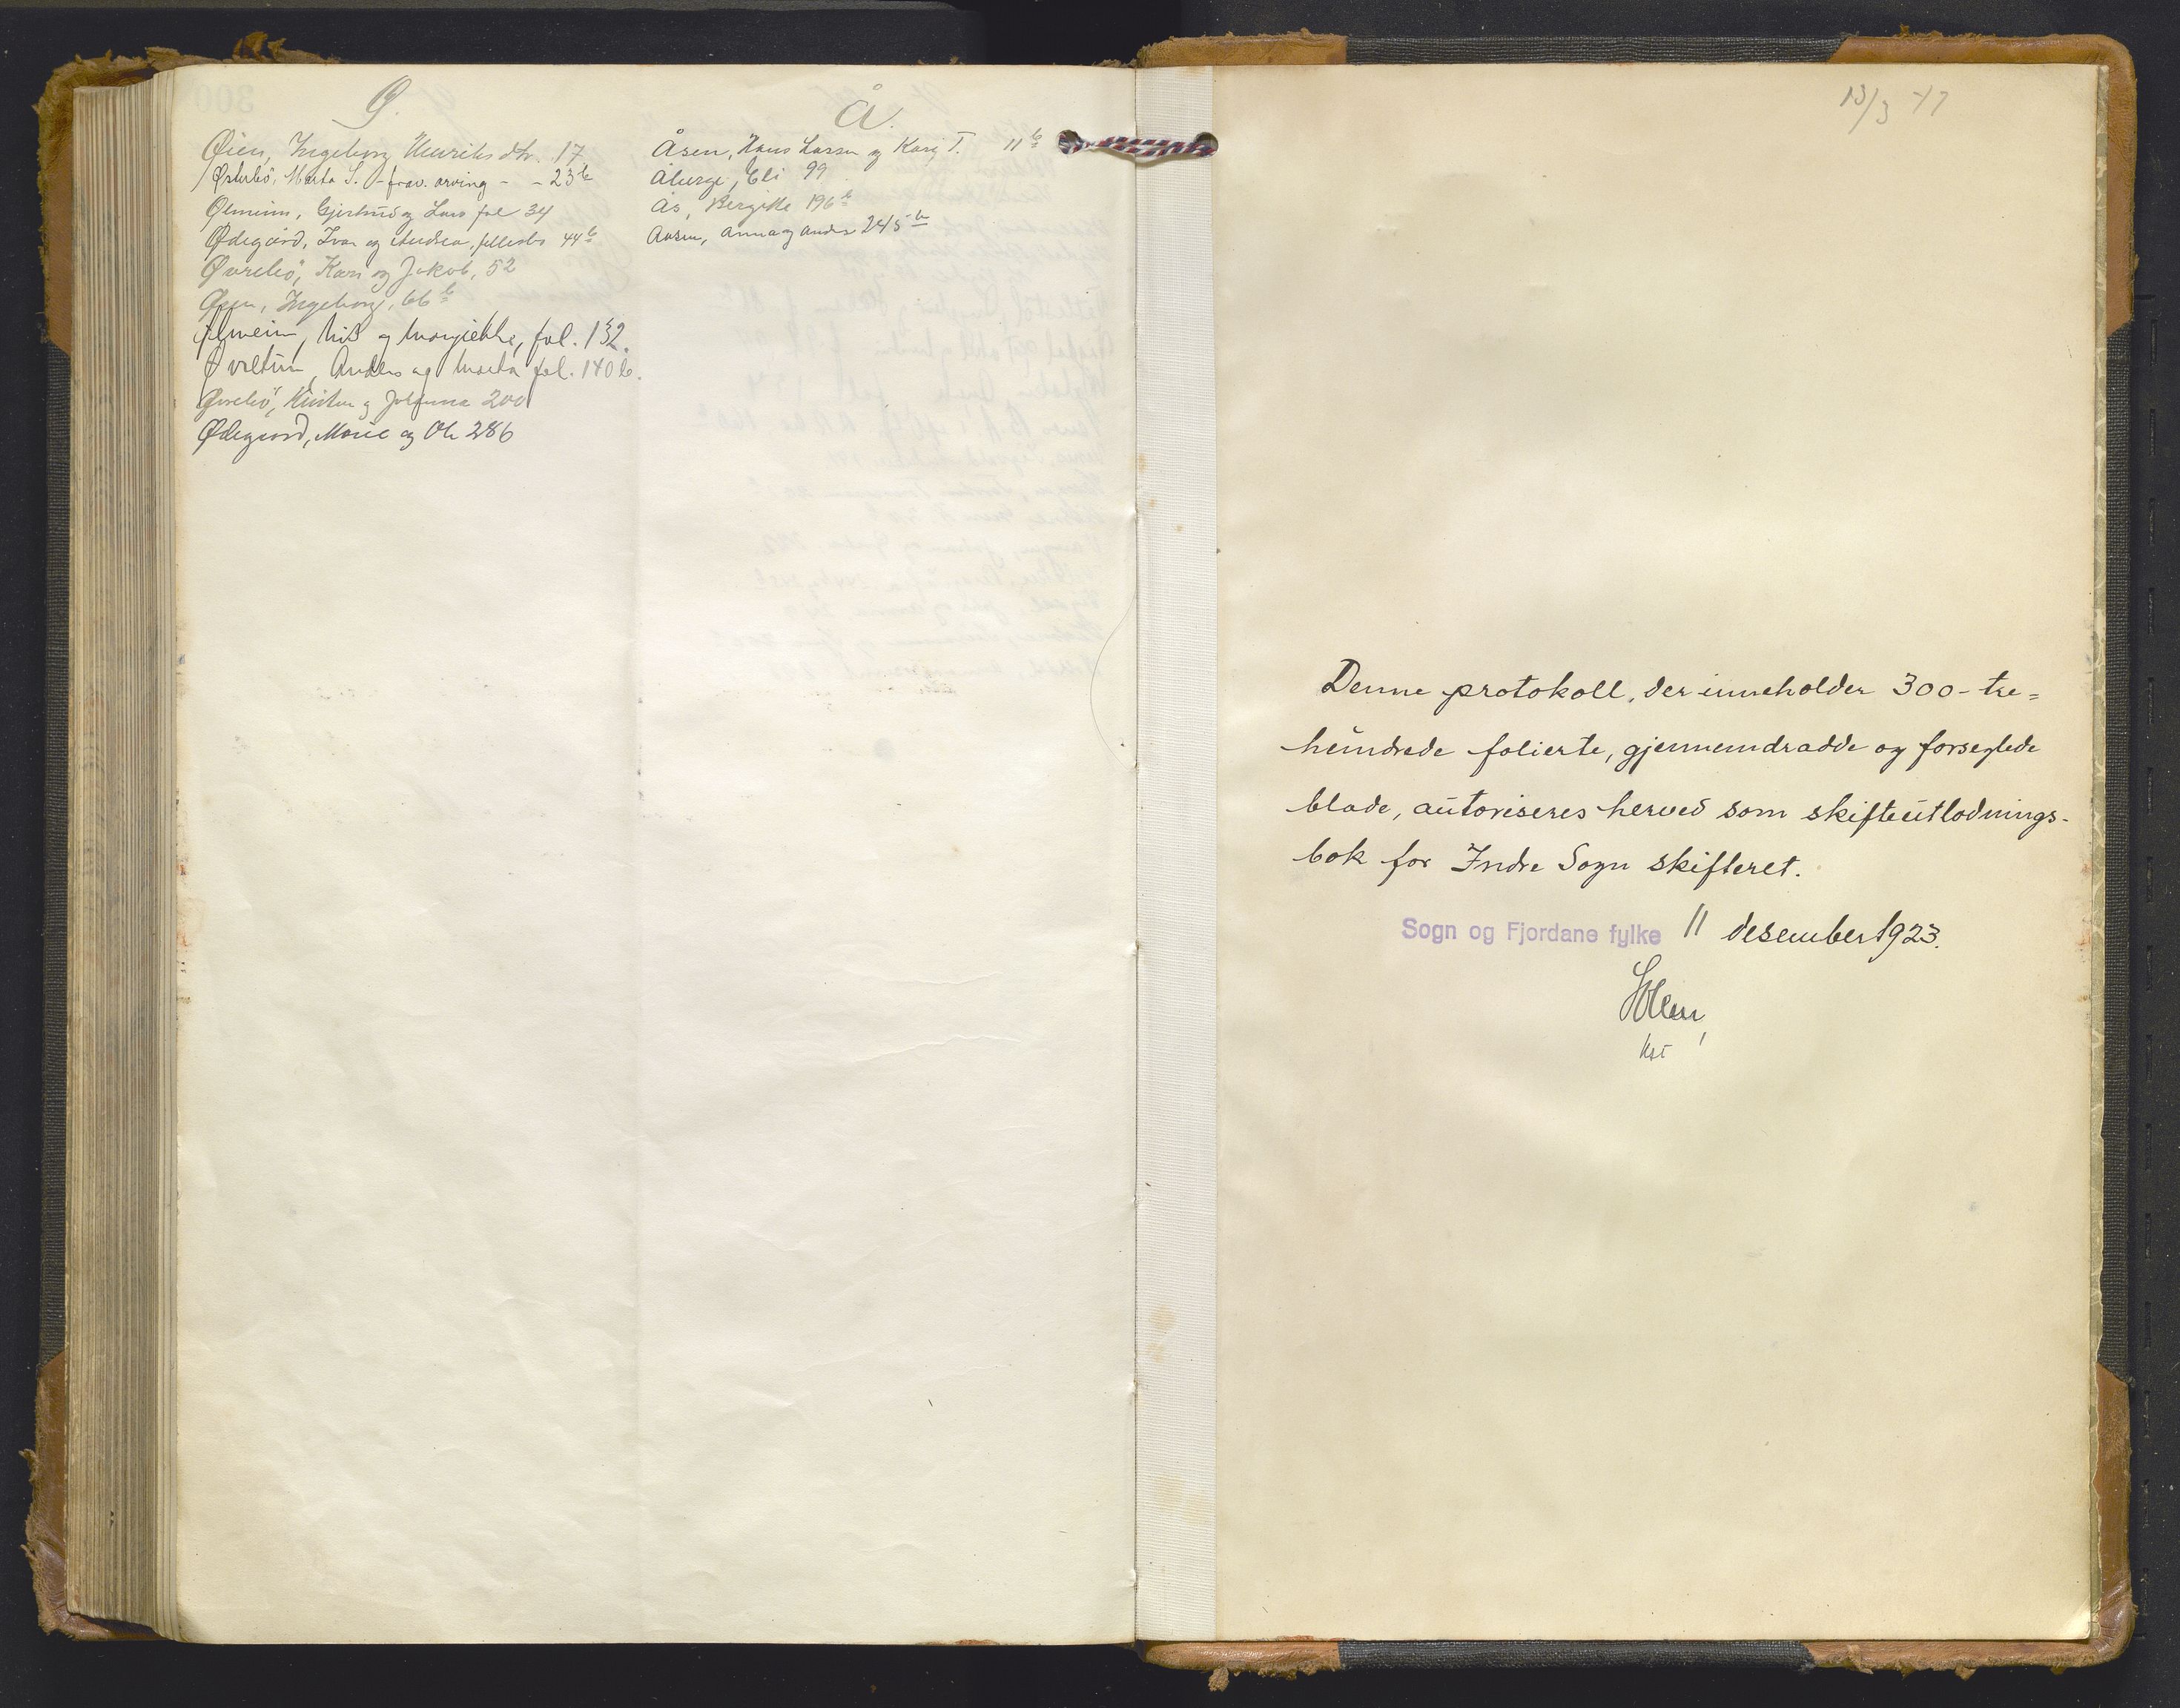 Ø.
Øien, Ingeborg Henriksdtr. 17
Østerbö, Marta S. - frav. arving - - 23 b
Ølmeim, Gjertrud og Lars fol 34
Ødegård, Ivar og Andrea, fellesbo 44 b
Øvrebö, Kari og Jakob, 52
Øyen, Ingeborg, 66 b
Ølmeim, Nils og Margrethe, fol. 132.
Øvretun, Anders og Marta fol. 140 b.
Øvrebö, Kristen og Johanna 200
Ødegaard, Marie og Ole 286
Å.
Åsen, Hans Larsen og Kari T. 11 b
Åberge, Eli 99
Ås, Bergitte 196 b
Aasen, Anna og Anders 245 b
13/3 47
Denne protokoll, der inneholder 300 - tre=
hundrede folierte, gjennemdradde og forseglede
blade, autoriseres herved som skifteutlodnings-
bok for Indre Sogn skifteret.
Sogn og Fjordane fylke 11 desember 1923.
kst